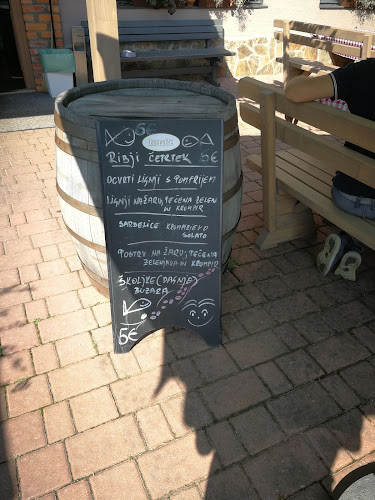 5€
RIBJI ČETRTEK 5€
OCVRTI LIGNJI S POMFRIJEM
LIGNJI NA ŽARU, PEČENA ZELEN.
IN KROMPIR
SARDELICE KROMPIRJEVO
SOLATO
POSTRV NA ŽARU, PEČENA
ZELENJAVA IN KROMPIR
ŠKOLJKE (DAGNJE)
BUZARA
5€